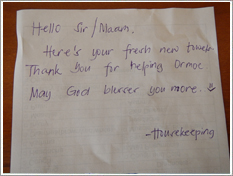 Hello Sir/Maam,
Here's your fresh new towels
Thank you for helping Ormoc
May God blesser you more.
-Housekeeping